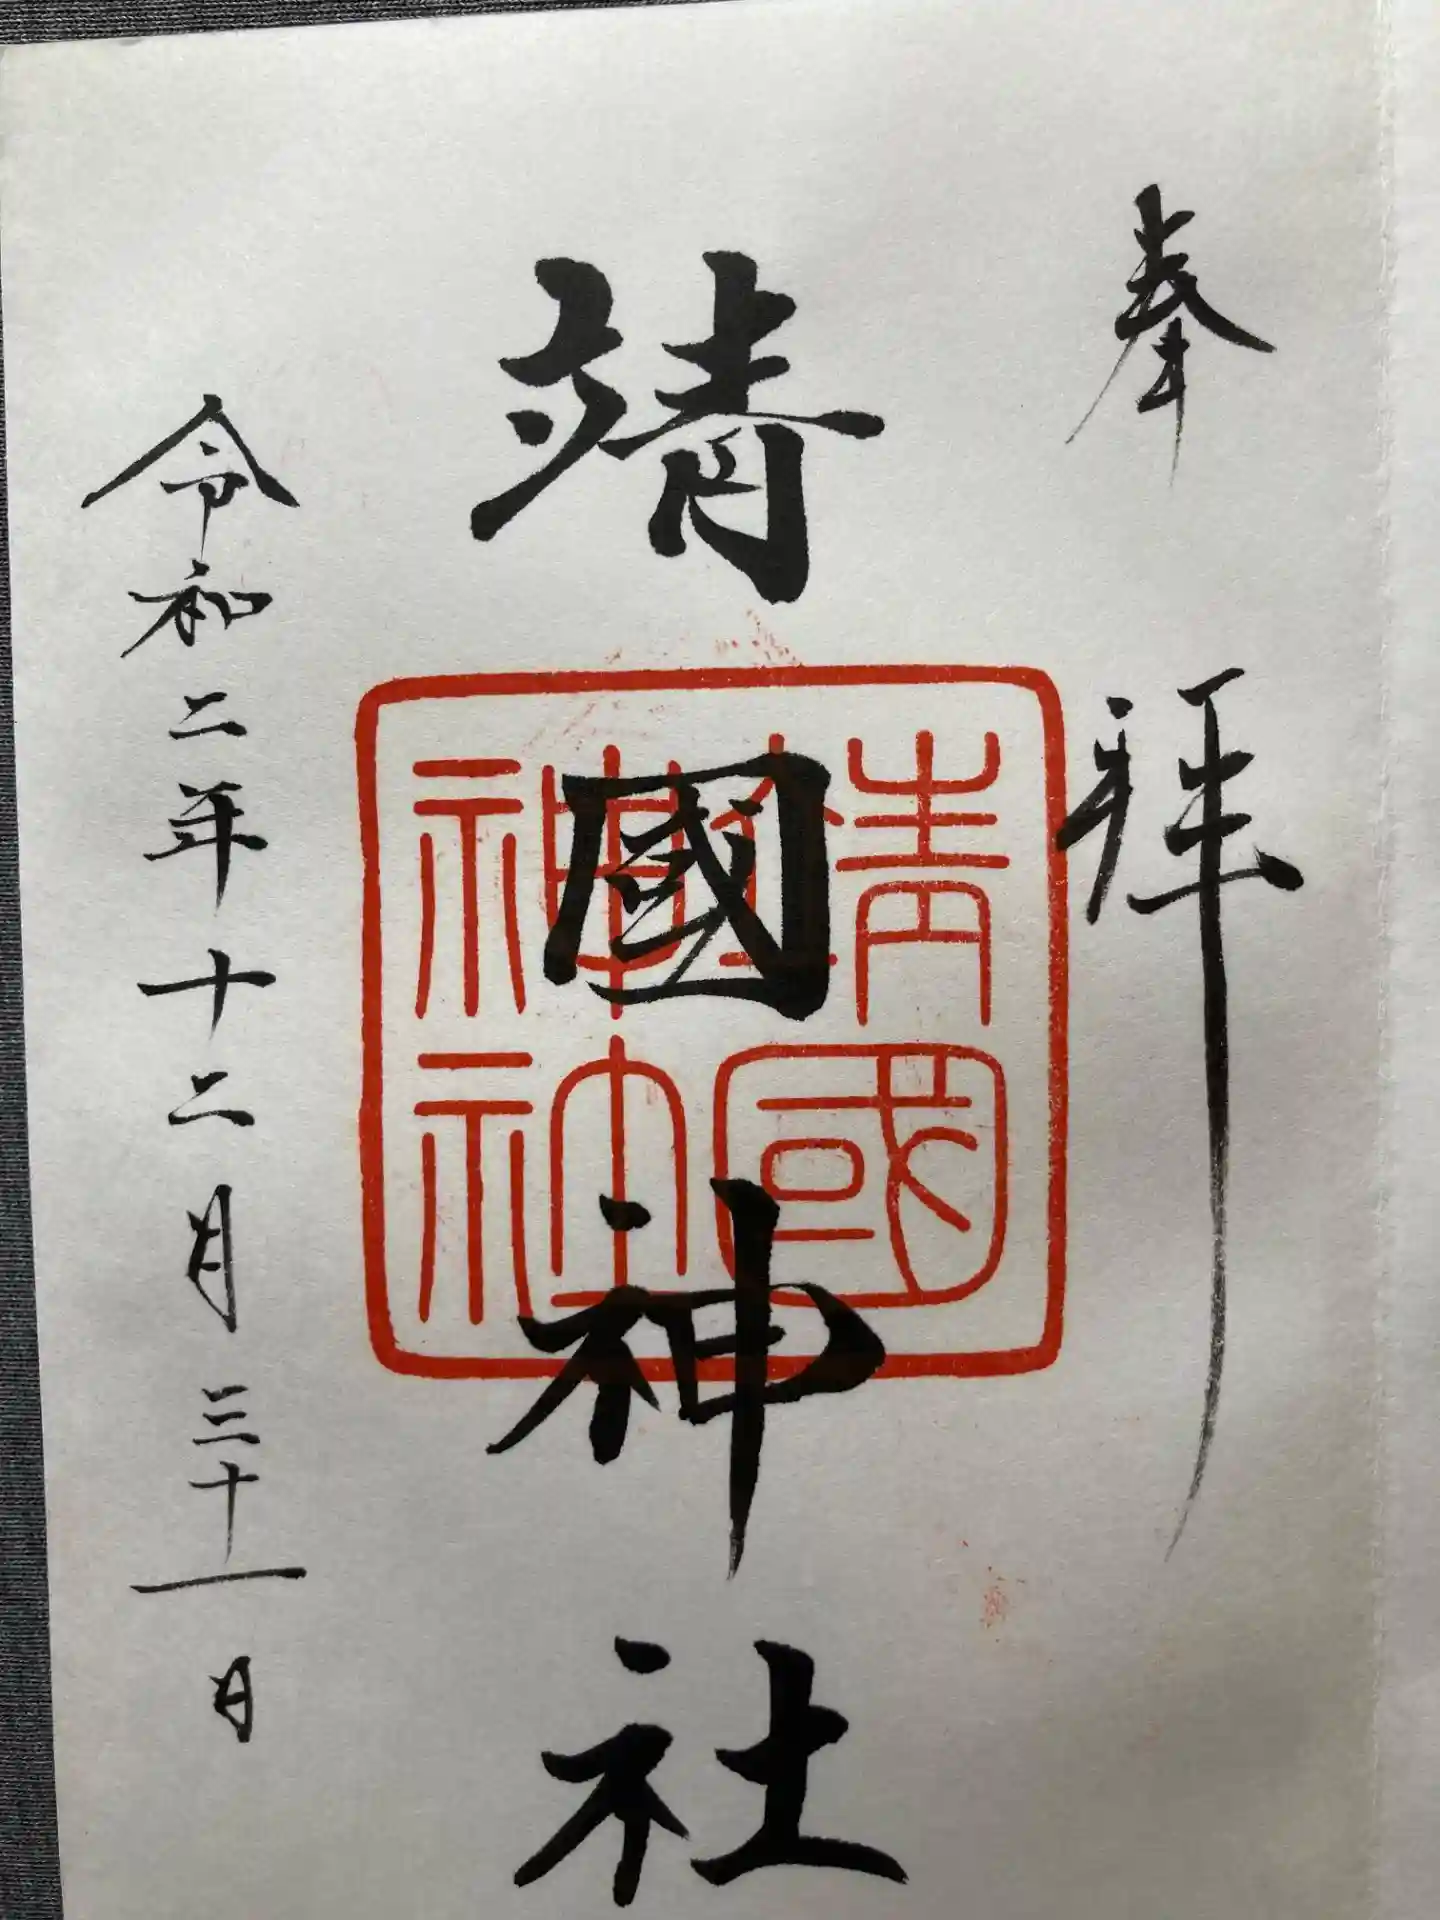 奉拝
靖國神社
靖國
神社
令和二年十二月三十一日